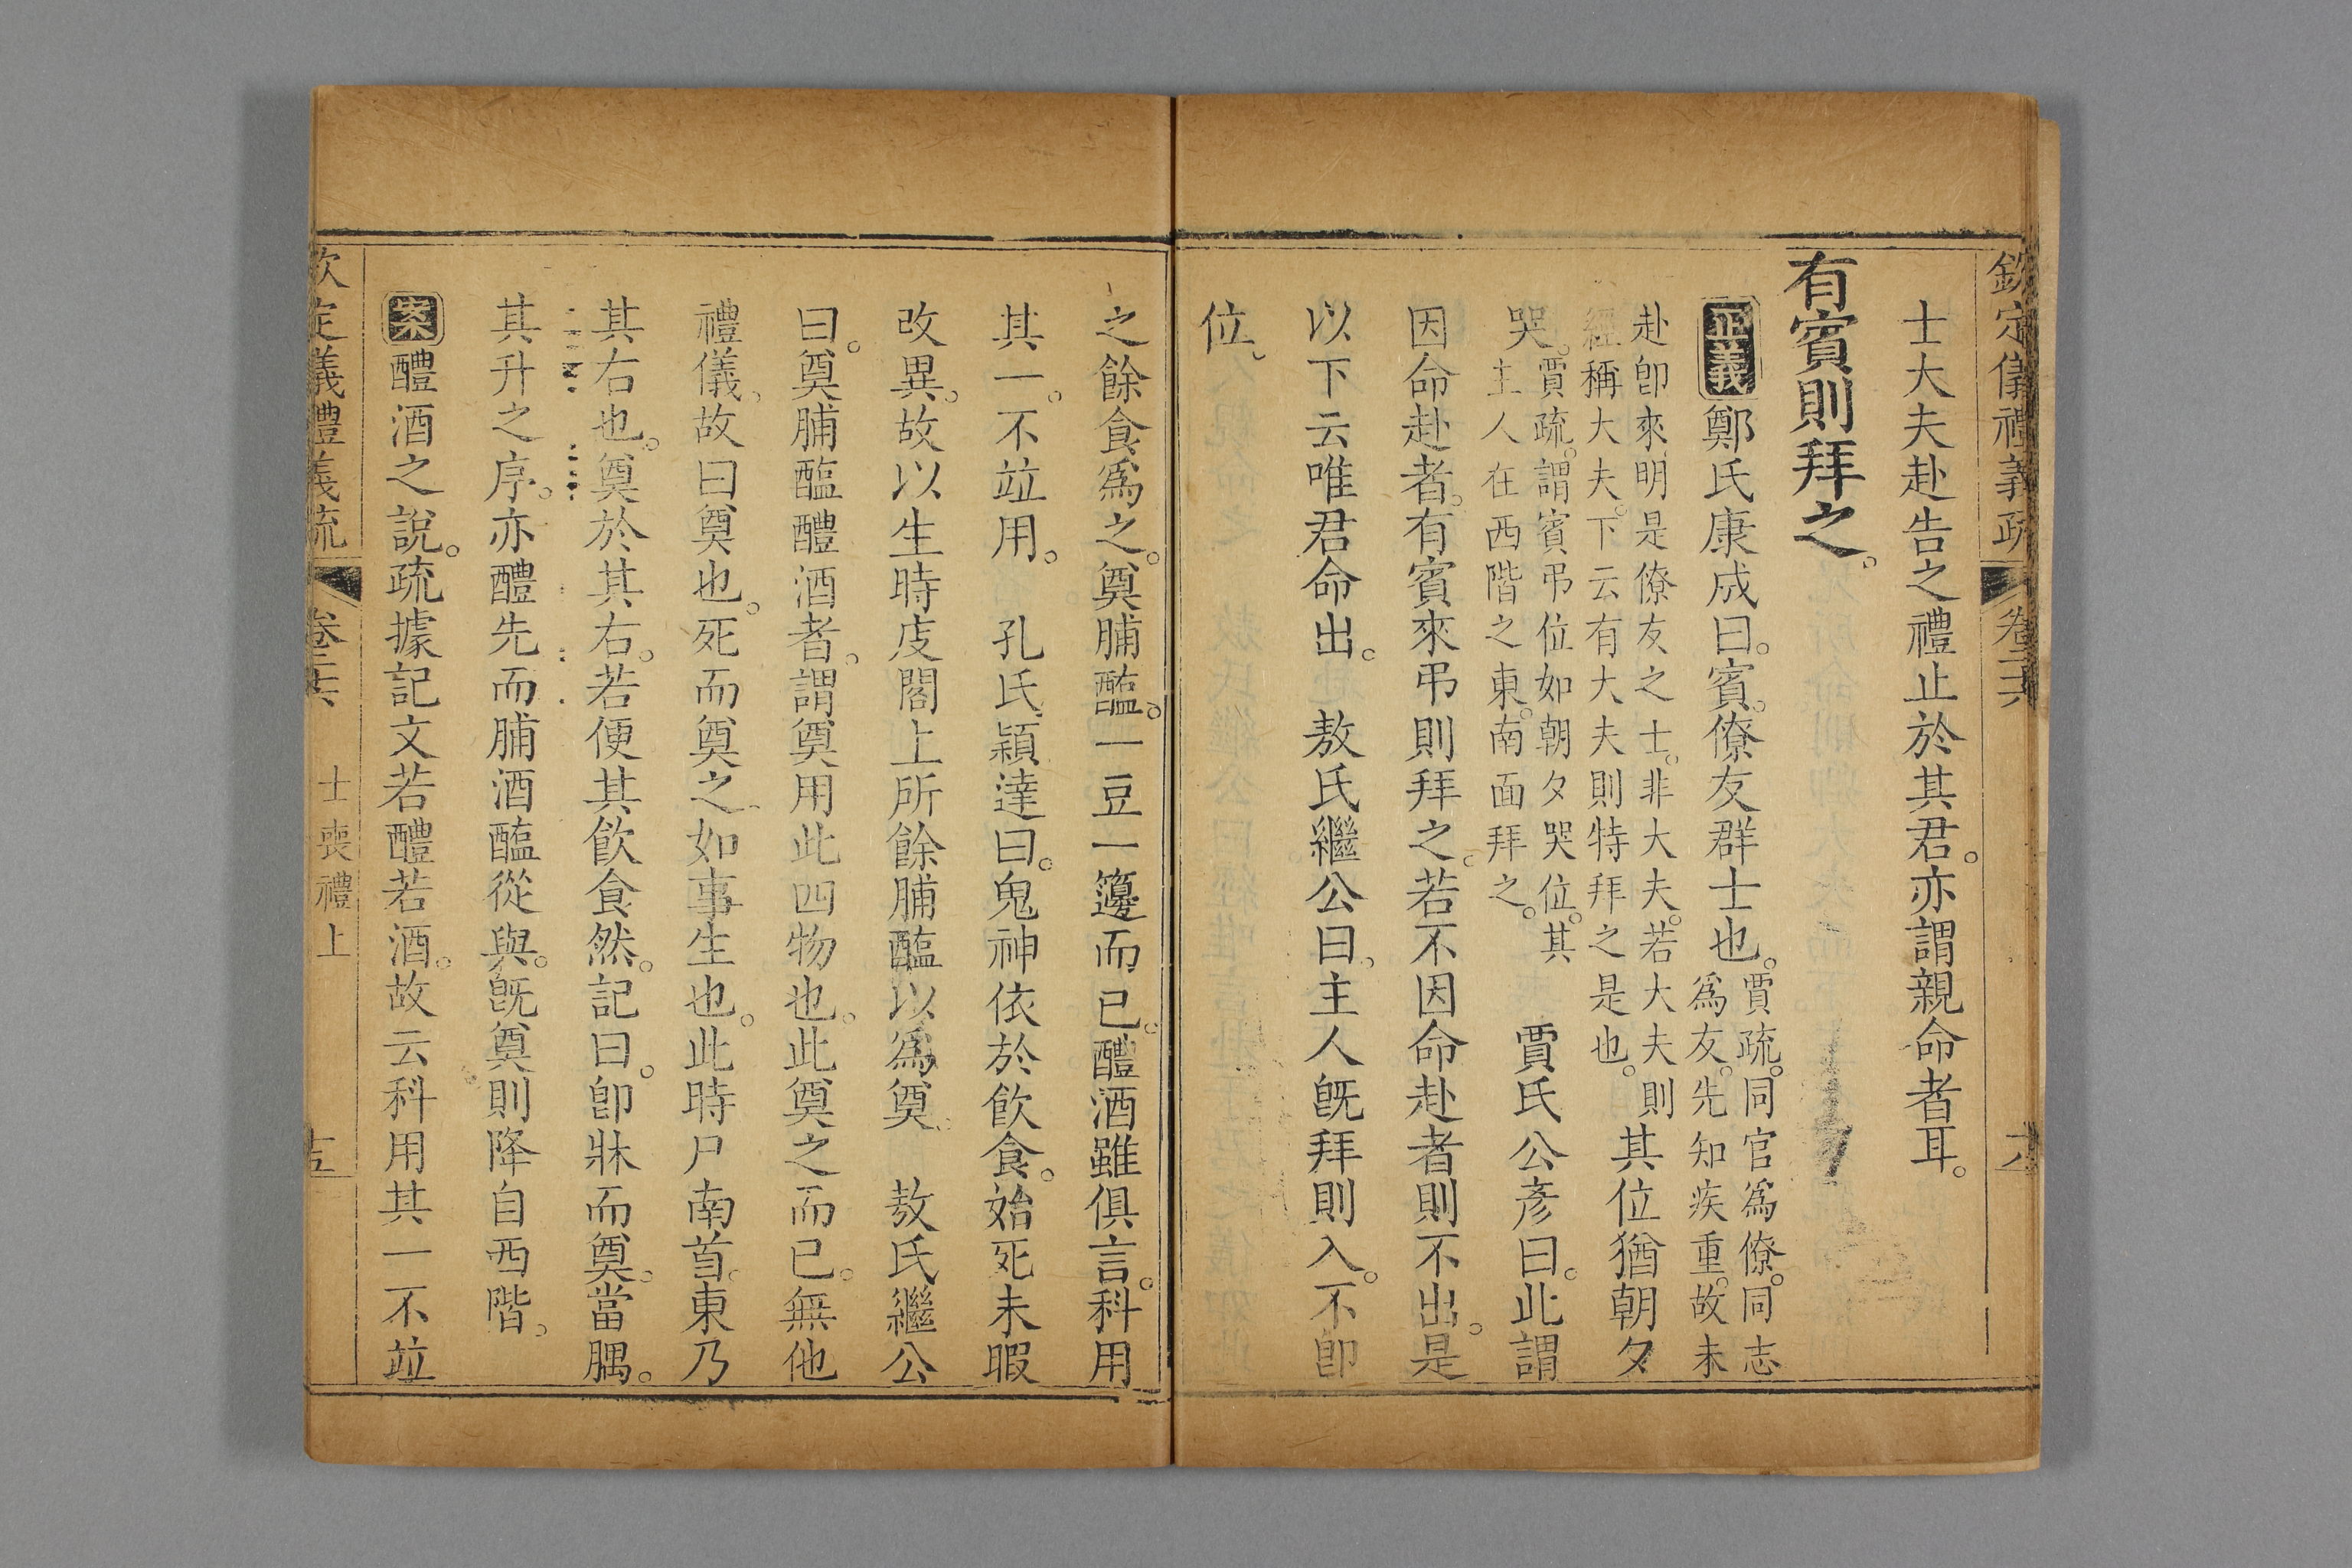 欽定儀禮義疏 卷二十六 六
士大夫赴告之禮止於其君。亦謂親命者耳。
有賓則拜之。
正義 鄭氏康成曰。賓。僚友群士也。賈疏。同官爲僚。同志
爲友。先知疾重。故未
赴卽來。明是僚友之士。非大夫。若大夫則
經稱大夫。下云有大夫則特拜之是也。
其位猶朝夕
哭。賈疏。謂賓弔位如朝夕哭位。其
主人在西階之東。南面拜之。
賈氏公彥曰。此謂
因命赴者。有賓來弔則拜之。若不因命赴者則不出。是
以下云唯君命出。 敖氏繼公曰。主人旣拜則入。不卽
位。
之餘食爲之。奠脯醢。一豆一籩而已。醴酒雖俱言。科用
其一。不竝用。 孔氏穎達曰。鬼神依於飲食。始死未暇
改異。故以生時庋閣上所餘脯醢以爲奠。 敖氏繼公
曰。奠脯醢醴酒者。謂奠用此四物也。此奠之而已。無他
禮儀。故曰奠也。死而奠之。如事生也。此時尸南首。東乃
其右也。奠於其右。若便其飲食然。記曰。卽牀而奠。當腢。
其升之序。亦醴先而脯酒醢從與。旣奠則降自西階。
案 醴酒之說。疏據記文若醴若酒。故云科用其一不竝
欽定儀禮義疏 卷二十六 士喪禮上 十五